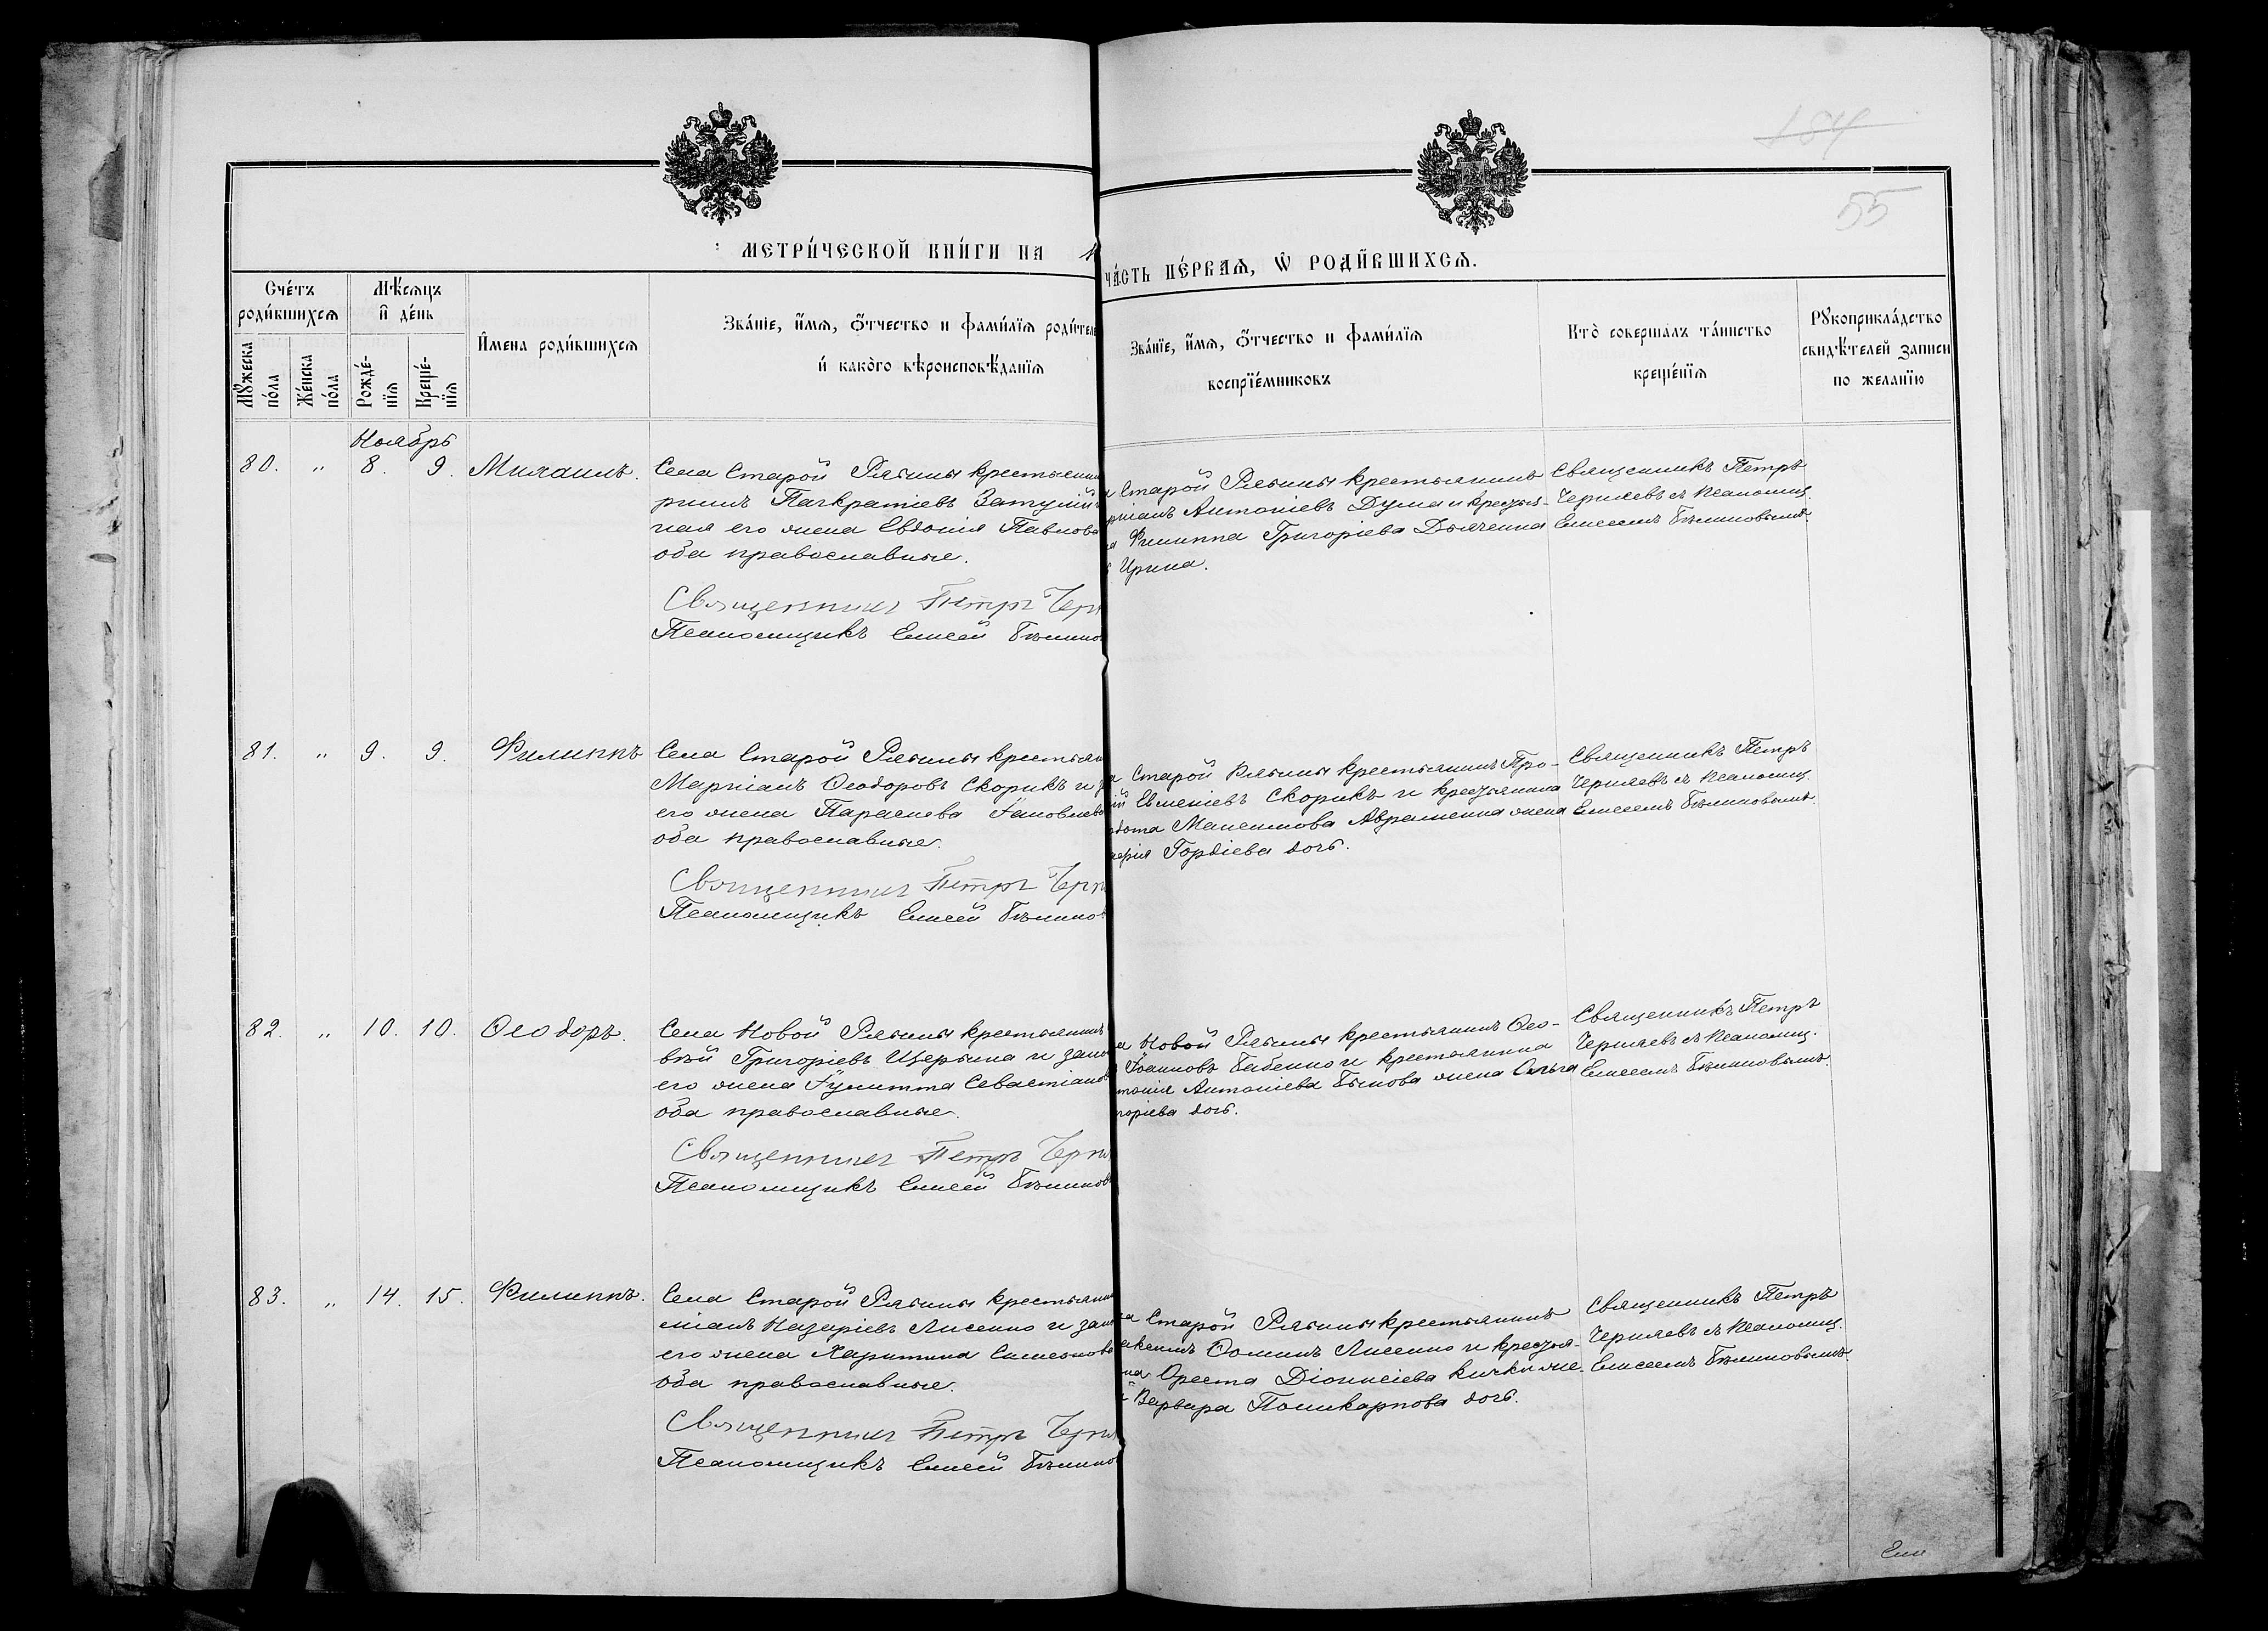 55
МЕТРИ́ЧЕСКОЙ КНИ́ГИ НА 1
ЧА́СТЬ ПЕ́РВАѦ, Ѡ҆ РОДИ́ВШИХСѦ.
Сче́тъ
роди́вшихсѧ
Мꙋ́жеска
по́ла
Же́нска
по́ла
Мѣ́сѧцъ
и҆ де́нь
Рожде́-
нїѧ
Креще́-
нїѧ
И҆мена роди́вшихсѧ
Зва́нїе, и҆́мѧ, ѻ҆́тчество и фами́лїѧ роди́теле
и҆ како́го вѣроисповѣ́данїѧ
Зва́нїе, и҆́мѧ, ѻ҆́тчество и фами́лїѧ
воспрїе́мниковъ
Кто̀ совершалъ та́инство
креще́нїѧ
Рꙋкоприкла́дство
свидѣ́телей записи
по желанїю
Ноябрь
80. " 8. 9. Михаилъ.
Села Старой Рябины крестьянин
рилъ Панкратіевъ
ная его жена Евдокія Павлова
оба православные.
Священникъ Петръ Черн
Псаломщикъ Елисей Бѣлино
Старой Рябины крестьянинъ
Антоніевъ Дума и крестья-
Филиппа Григоріева Дьяченка
Ирина.
Священникъ Петръ
Черняевъ съ псаломщ.
Елисеемъ Бѣлиновымъ.
81. " 9. 9. Филиппъ
Села Старой Рябины крестьян
Маркіанъ Ѳеодоровъ Скорикъ и з
его жена Параскева Іаковлева
оба православные.
Священникъ Петръ Черн
Псаломщикъ Елисей Бѣлинов
Старой Рябины крестьянинъ Про-
ій Евменіевъ Скорикъ и крестьянина
Максимова Авраменка жена
Гордіева дочь.
Священникъ Петръ
Черняевъ съ псаломщ.
Елисеемъ Бѣлиновымъ.
82. " 10. 10. Ѳеодоръ.
Села Новой Рябины крестьянинъ
вѣй Григоріевъ Щербина и зако
его жена Іулитта Севастіанов
оба православные.
Священникъ Петръ Черн
Псаломщикъ Елисей Бѣлинов
а Новой Рябины крестьянинъ Ѳео-
Іоанновъ Бабенко и крестьянина
Антоніева Быкова жена Ольга
горіева дочь.
Священникъ Петръ
Черняевъ съ псаломщ.
Елисеемъ Бѣлиновымъ.
83. " 14. 15. Филиппъ.
Села Старой Рябины крестьянин
Назаріевъ Лисенко и зак
его жена Харитина Симеонова
оба православные.
Священникъ Петръ Черн
Псаломщикъ Елисей Бѣлино
а Старой Рябины крестьянинъ
Ѳоминъ Лисенко и крестья-
на Ореста Діонисіева Кички же-
Варвара Поликарпова дочь.
Священникъ Петръ
Черняевъ съ псаломщ.
Елисеемъ Бѣлиновымъ.